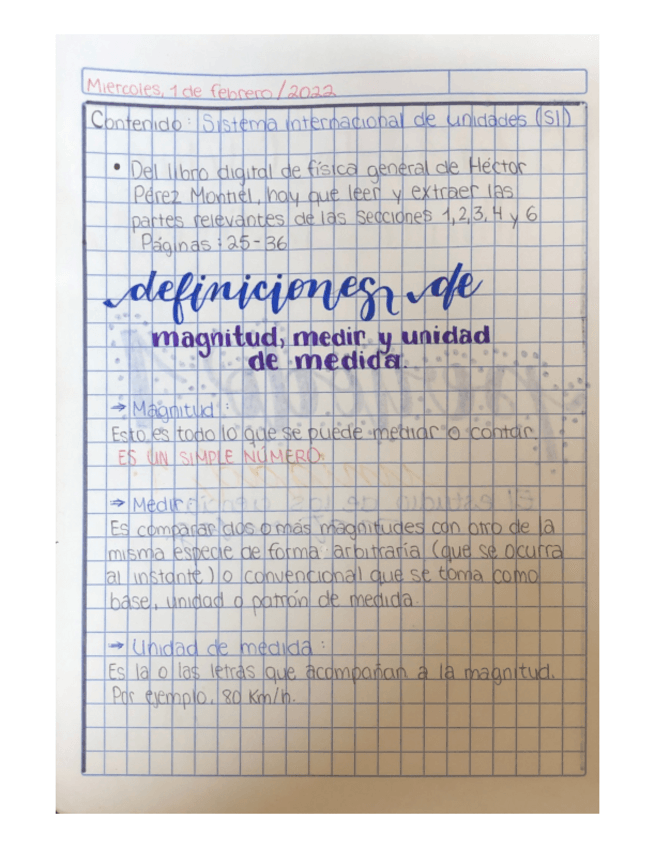 Miercoles, 1 de febrero / 2022
Contenido: Sistema internacional de unidades (SI)
• Del libro digital de física general de Héctor
Pérez Montiel, hay que leer y extraer las
partes relevantes de las secciones 1,2,3,4 y 6
Páginas: 25-36
definiciones de
magnitud, medir y unidad
de medida.
→ Magnitud:
Esto es todo lo que se puede mediar o contar.
ES UN SIMPLE NÚMERO.
→ Medir
Es comparar dos o más magnitudes con otro de la
misma especie de forma arbitraria (que se ocurra
al instante) o convencional que se toma como
base, unidad o patrón de medida.
→ Unidad de medida:
Es la o las letras que acompañan a la magnitud.
Por ejemplo, 80 Km/h.